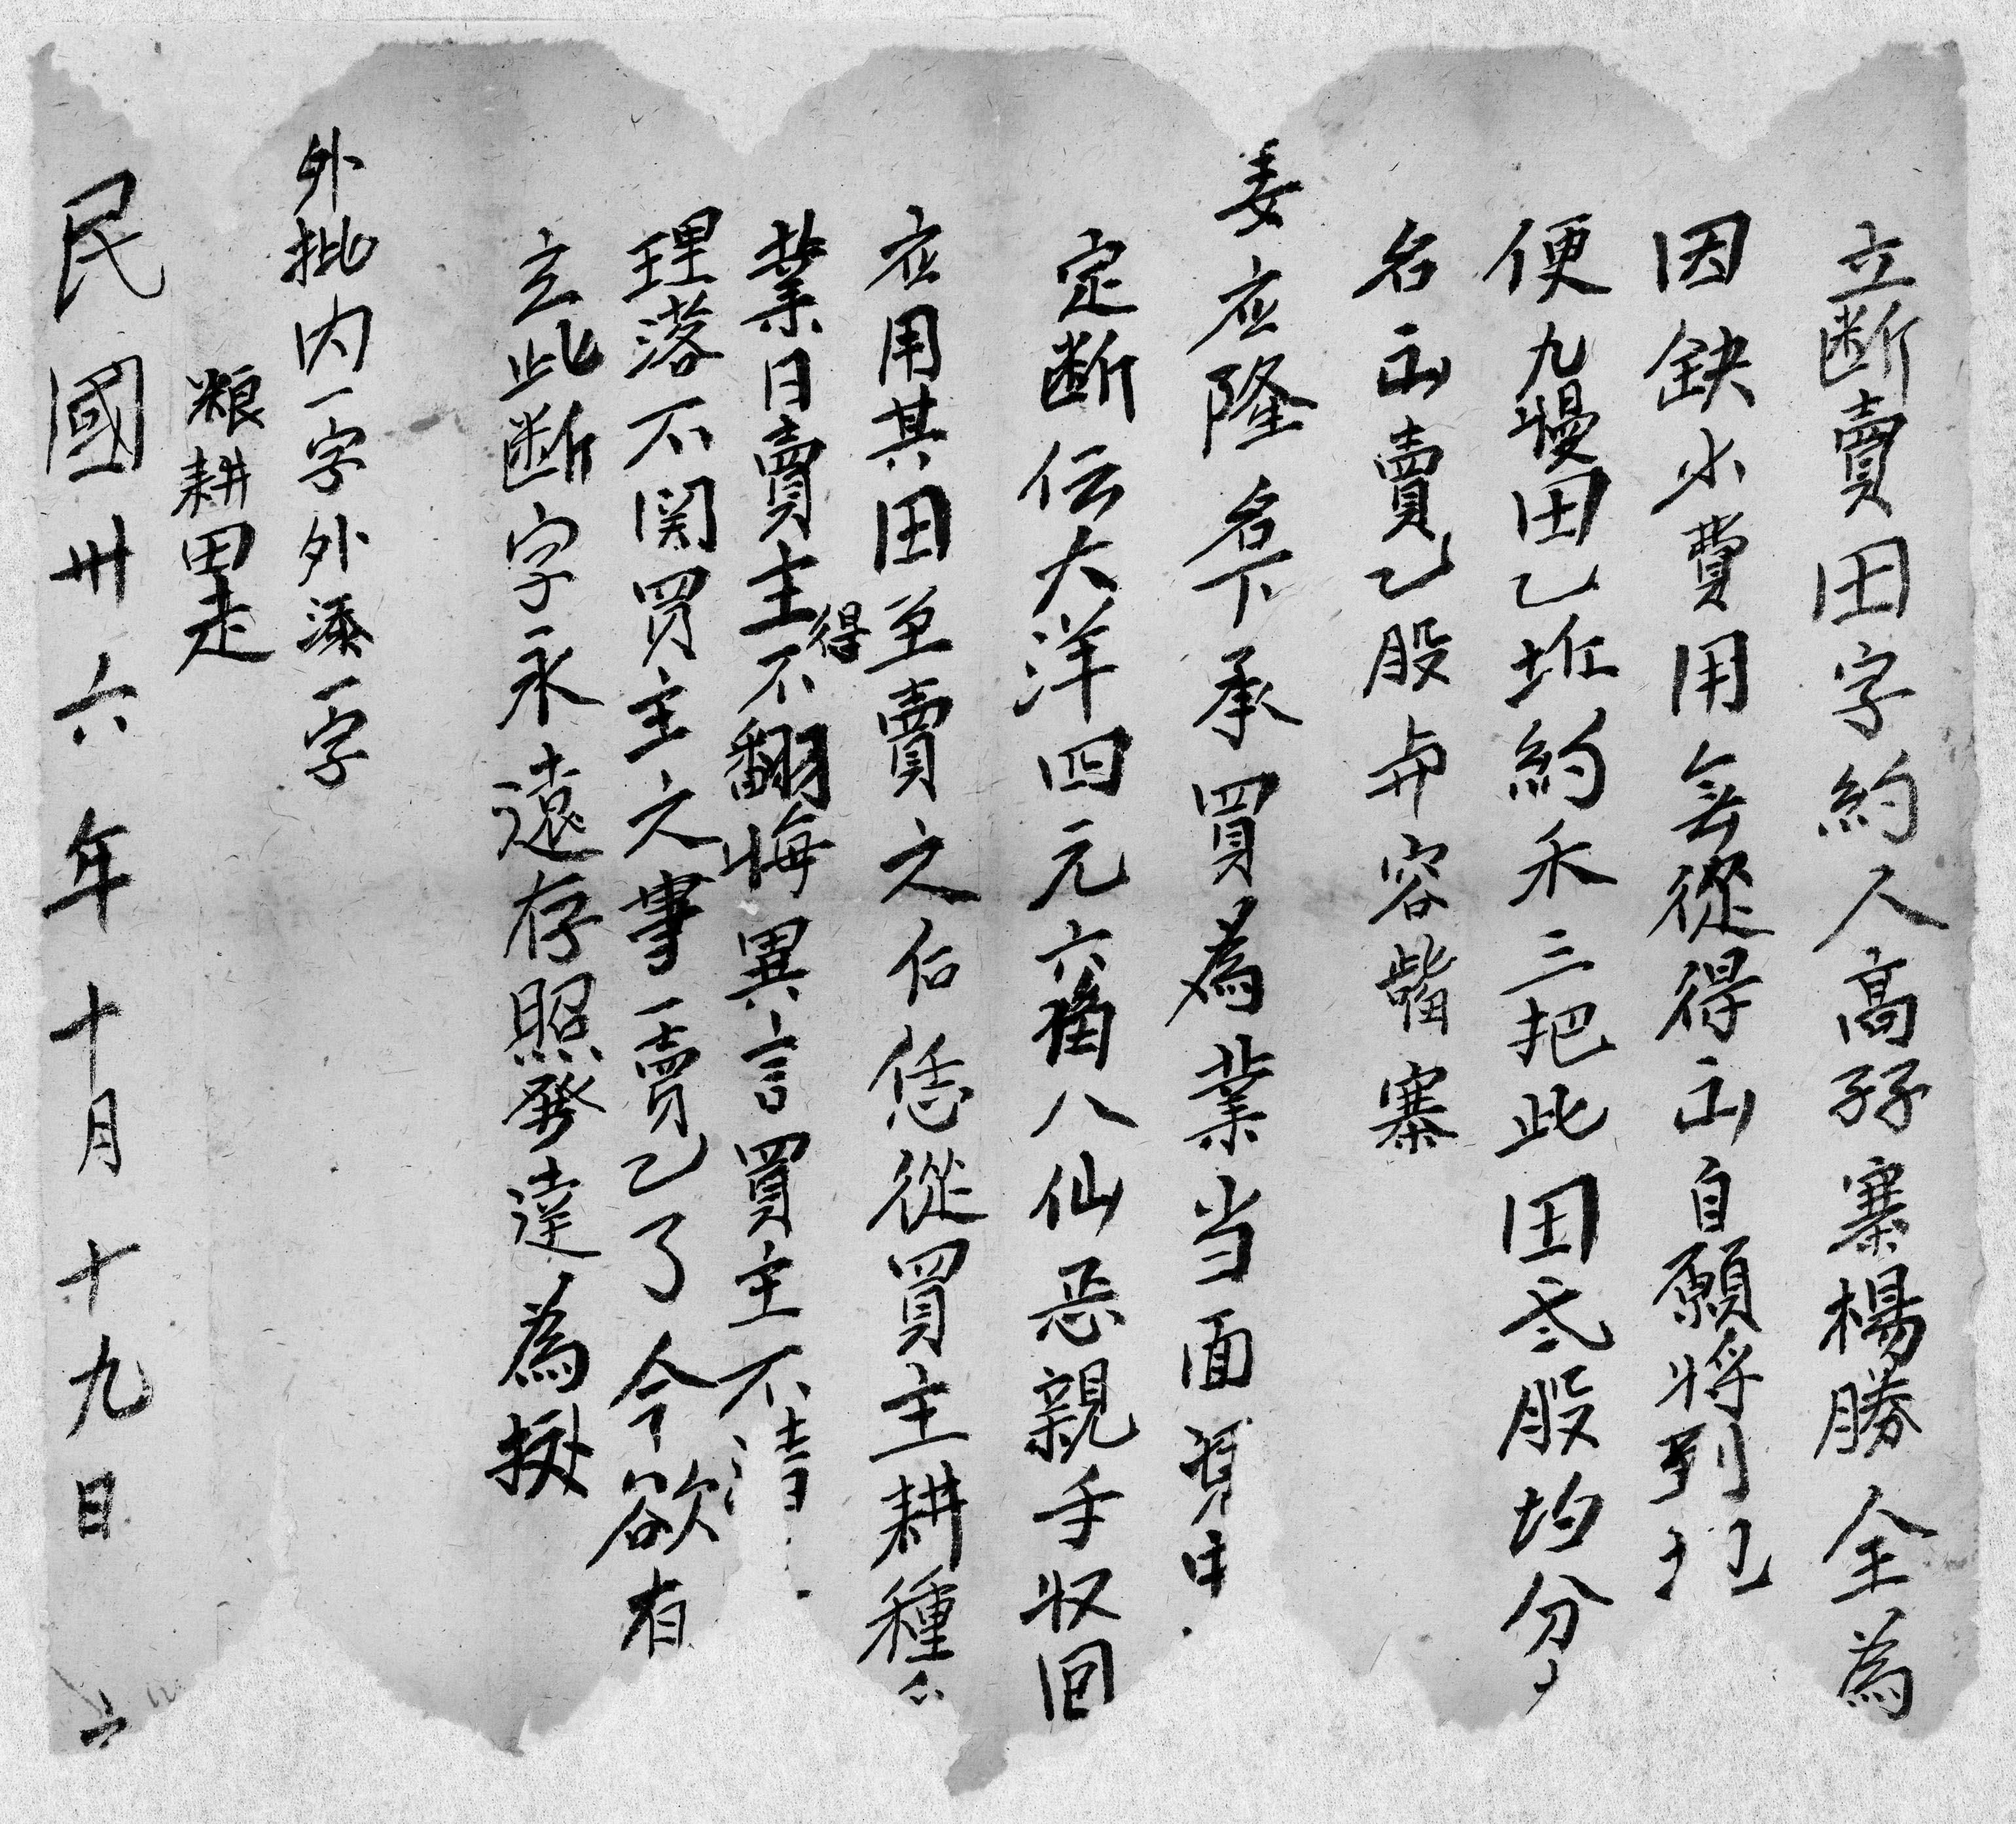 立断賣田字約人高孖寨楊勝全為
因缺少費用無從得出自願将到
便九墁田乙坵約禾三把此田叁股均分
名出賣乙股与容嘴寨
姜应隆名下承買為業当面憑中
定断伝大洋四元六角八仙恶親手収回
应用其田至賣之后恁從買主耕種
業日賣主不得翻悔異言買主不清
理落不関買主之事一賣乙了今欲有
立此断字永遠存照發達為據
外批内一字外添一字
粮耕田走
民國卅六年十月十九日